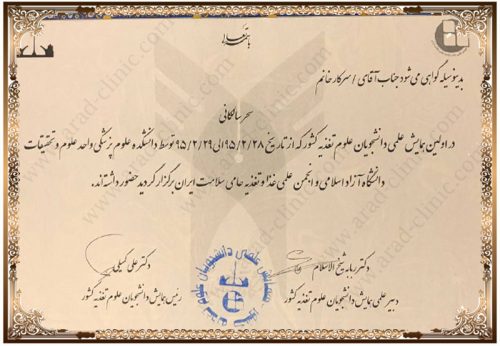 باسمه تعالی
بدینوسیله گواهی می شود جناب آقای / سرکار خانم
سحر سالکانی
در اولین همایش علمی دانشجویان علوم تغذیه کشور که از تاریخ ۹۵/۲/۲۸ الی ۹۵/۲/۲۹ توسط دانشکده علوم پزشکی واحد علوم و تحقیقات
دانشگاه آزاد اسلامی و انجمن علمی غذا و تغذیه حامی سلامت ایران برگزار گردید حضور داشته‌اند.
دکتر ربابه شیخ الاسلام
دبیر علمی همایش دانشجویان علوم تغذیه کشور
دکتر علی کمیلی
رئیس همایش دانشجویان علوم تغذیه کشور
همایش علمی دانشجویان علوم تغذیه کشور
www.arad-clinic.com